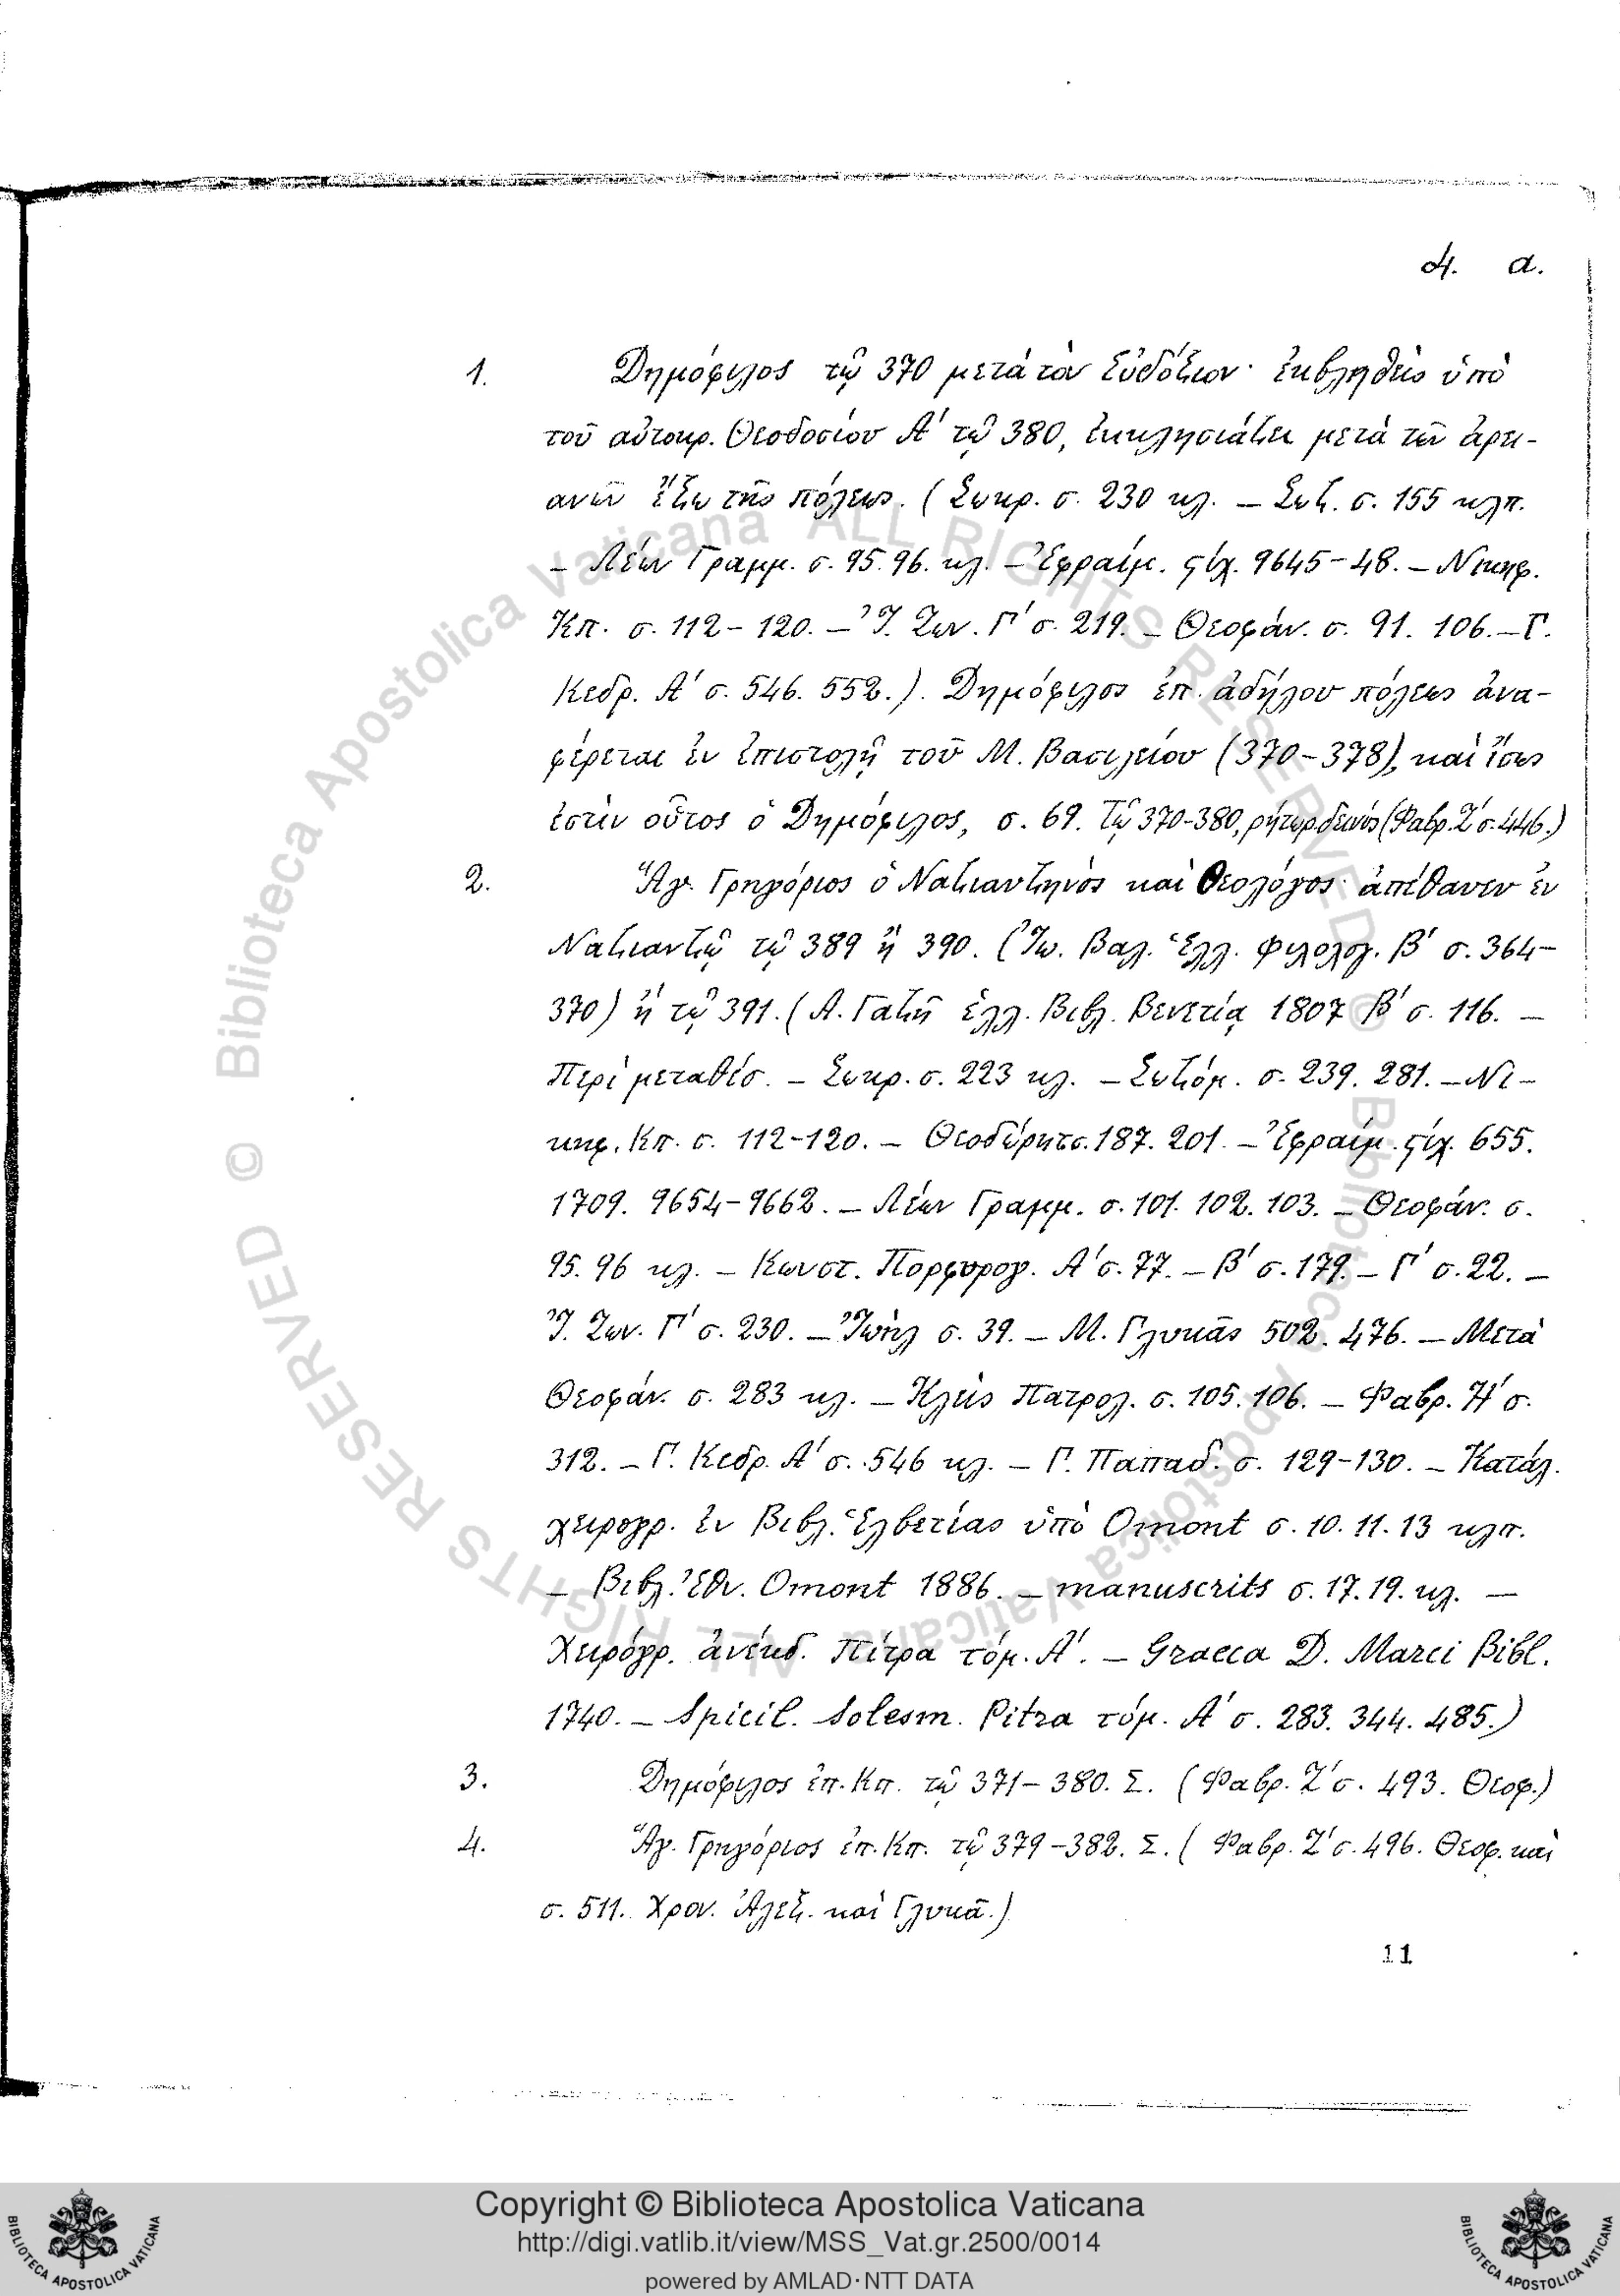 4. α.
1. Δημόφιλος τῷ 370 μετὰ τὸν Εὐδόξιον· ἐκβληθεὶς ὑπὸ
τοῦ αὐτοκρ. Θεοδοσίου Α΄ τῷ 380, ἐκκλησιάζει μετὰ τῶν ἀρει-
ανῶν ἔξω τῆς πόλεως. (Σωκρ. σ. 230 κλ. – Σωζ. σ. 155 κλπ.
– Λέων Γραμμ. σ. 95. 96. κλ. – Ἐφραίμ. ϛίχ. 9645–48. – Νικηφ.
Κπ. σ. 112–120. – Ἰ. Ζων. Γ΄ σ. 219. – Θεοφάν. σ. 91. 106. – Γ.
Κεδρ. Α΄ σ. 546. 552.). Δημόφιλος ἐπ. ἀδήλου πόλεως ἀνα-
φέρεται ἐν ἐπιστολῇ τοῦ Μ. Βασιλείου (370–378), καὶ ἴσως
ἐστὶν οὗτος ὁ Δημόφιλος, σ. 69. Τῷ 370–380, ῥήτωρ δεινός (Φαβρ. Ζ΄ σ. 446.)
2. Ἅγ. Γρηγόριος ὁ Ναζιανζηνὸς καὶ Θεολόγος· ἀπέθανεν ἐν
Ναζιανζῷ τῷ 389 ἢ 390. (Ἰω. Βαλ. Ἑλλ. Φιλολογ. Β΄ σ. 364–
370) ἢ τῷ 391. (Α. Γαζῆ ἑλλ. Βιβλ. Βενετίᾳ 1807 Β΄ σ. 116. –
Περὶ μεταθέσ. – Σωκρ. σ. 223 κλ. – Σωζόμ. σ. 239. 281. – Νι-
κηφ. Κπ. σ. 112–120. – Θεοδώρητ σ. 187. 201. – Ἐφραίμ. ϛίχ. 655.
1709. 9654–9662. – Λέων Γραμμ. σ. 101. 102. 103. – Θεοφάν. σ.
95. 96 κλ. – Κωνστ. Πορφυρογ. Α΄ σ. 77. – Β΄ σ. 179. – Γ΄ σ. 22. –
Ἰ. Ζων. Γ΄ σ. 230. – Ἰωὴλ σ. 39. – Μ. Γλυκᾶς 502. 476. – Μετὰ
Θεοφάν. σ. 283 κλ. – Κλεὶς Πατρολ. σ. 105. 106. – Φαβρ. Η΄ σ.
312. – Γ. Κεδρ. Α΄ σ. 546 κλ. – Γ. Παπαδ. σ. 129–130. – Κατάλ.
χειρογρ. ἐν Βιβλ. Ἑλβετίας ὑπὸ Omont σ. 10. 11. 13 κλπ.
– Βιβλ. Ἐθν. Omont 1886. – manuscrits σ. 17. 19. κλ. –
Χειρόγρ. ἀνέκδ. Πίτρα τόμ. Α΄. – Graeca D. Marci Bibl.
1740. – Spicil. Solesm. Pitra τόμ. Α΄ σ. 283. 344. 485.)
3. Δημόφιλος ἐπ. Κπ. τῷ 371–380. Σ. (Φαβρ. Ζ΄ σ. 493. Θεοφ.)
4. Ἅγ. Γρηγόριος ἐπ. Κπ. τῷ 379–382. Σ. (Φαβρ. Ζ΄ σ. 496. Θεοφ. καὶ
σ. 511. Χρον. Ἀλεξ. καὶ Γλυκᾶ.)
11
© Biblioteca Apostolica Vaticana ALL RIGHTS RESERVED
© Biblioteca Apostolica Vaticana ALL RIGHTS RESERVED
Copyright © Biblioteca Apostolica Vaticana
http://digi.vatlib.it/view/MSS_Vat.gr.2500/0014
powered by AMLAD·NTT DATA
BIBLIOTECA APOSTOLICA VATICANA
BIBLIOTECA APOSTOLICA VATICANA